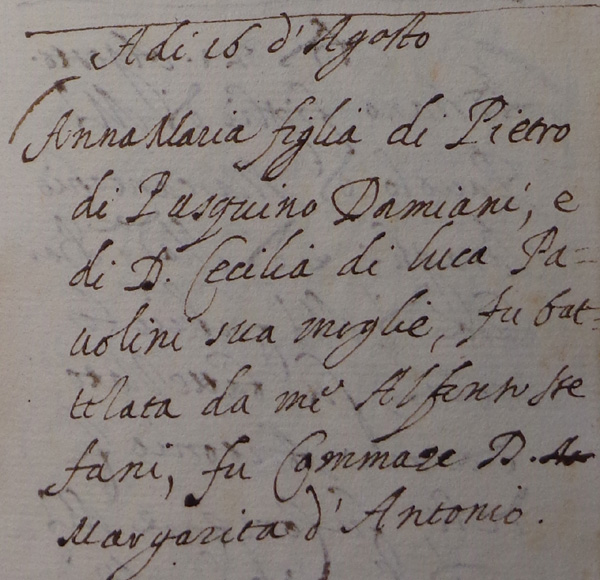 A di 16 d'Agosto
Anna Maria figlia di Pietro
di Pasquino Damiani, e
di D. Cecilia di luca Pa=
uolini sua moglie, fu bat=
tezata da me
fani, fu Commare D.
Margarita d'Antonio.